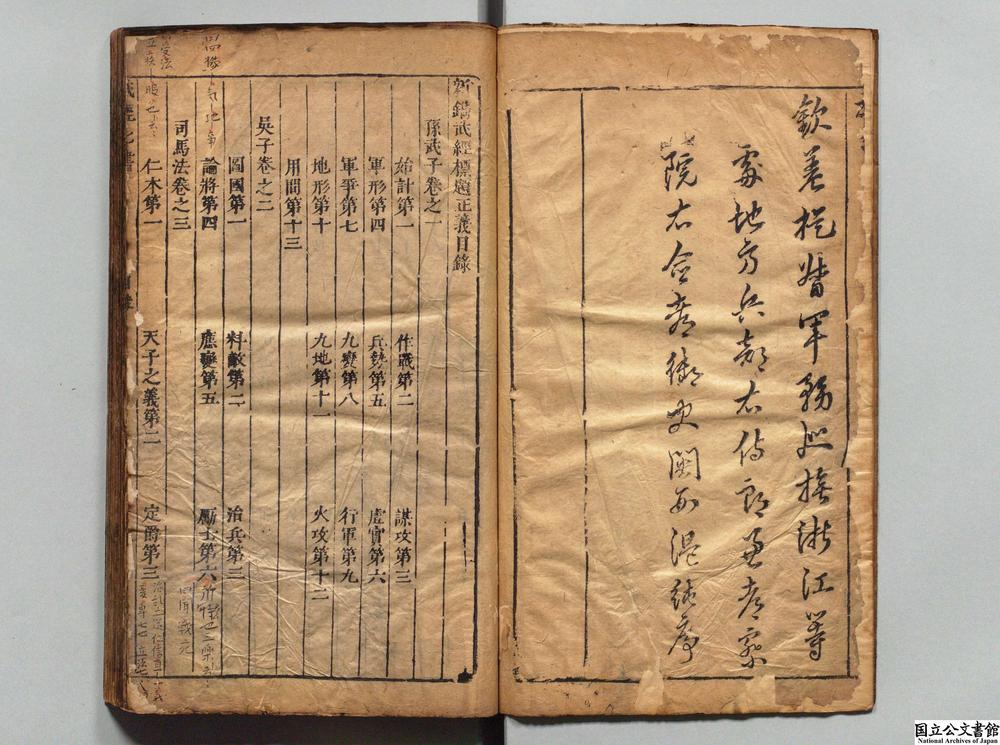 欽差提督軍務巡撫浙江等
處地方兵部右侍郎兼都察
院右僉都御史關西溫純序
新鐫武經標題正義目錄
孫武子卷之一
始計第一　作戰第二　謀攻第三
軍形第四　兵勢第五　虛實第六
軍爭第七　九變第八　行軍第九
地形第十　九地第十一　火攻第十二
用間第十三
吳子卷之二
圖國第一　料敵第二　治兵第三
論將第四　應變第五　勵士第六
司馬法卷之三
仁本第一　天子之義第二　定爵第三
国立公文書館
National Archives of Japan